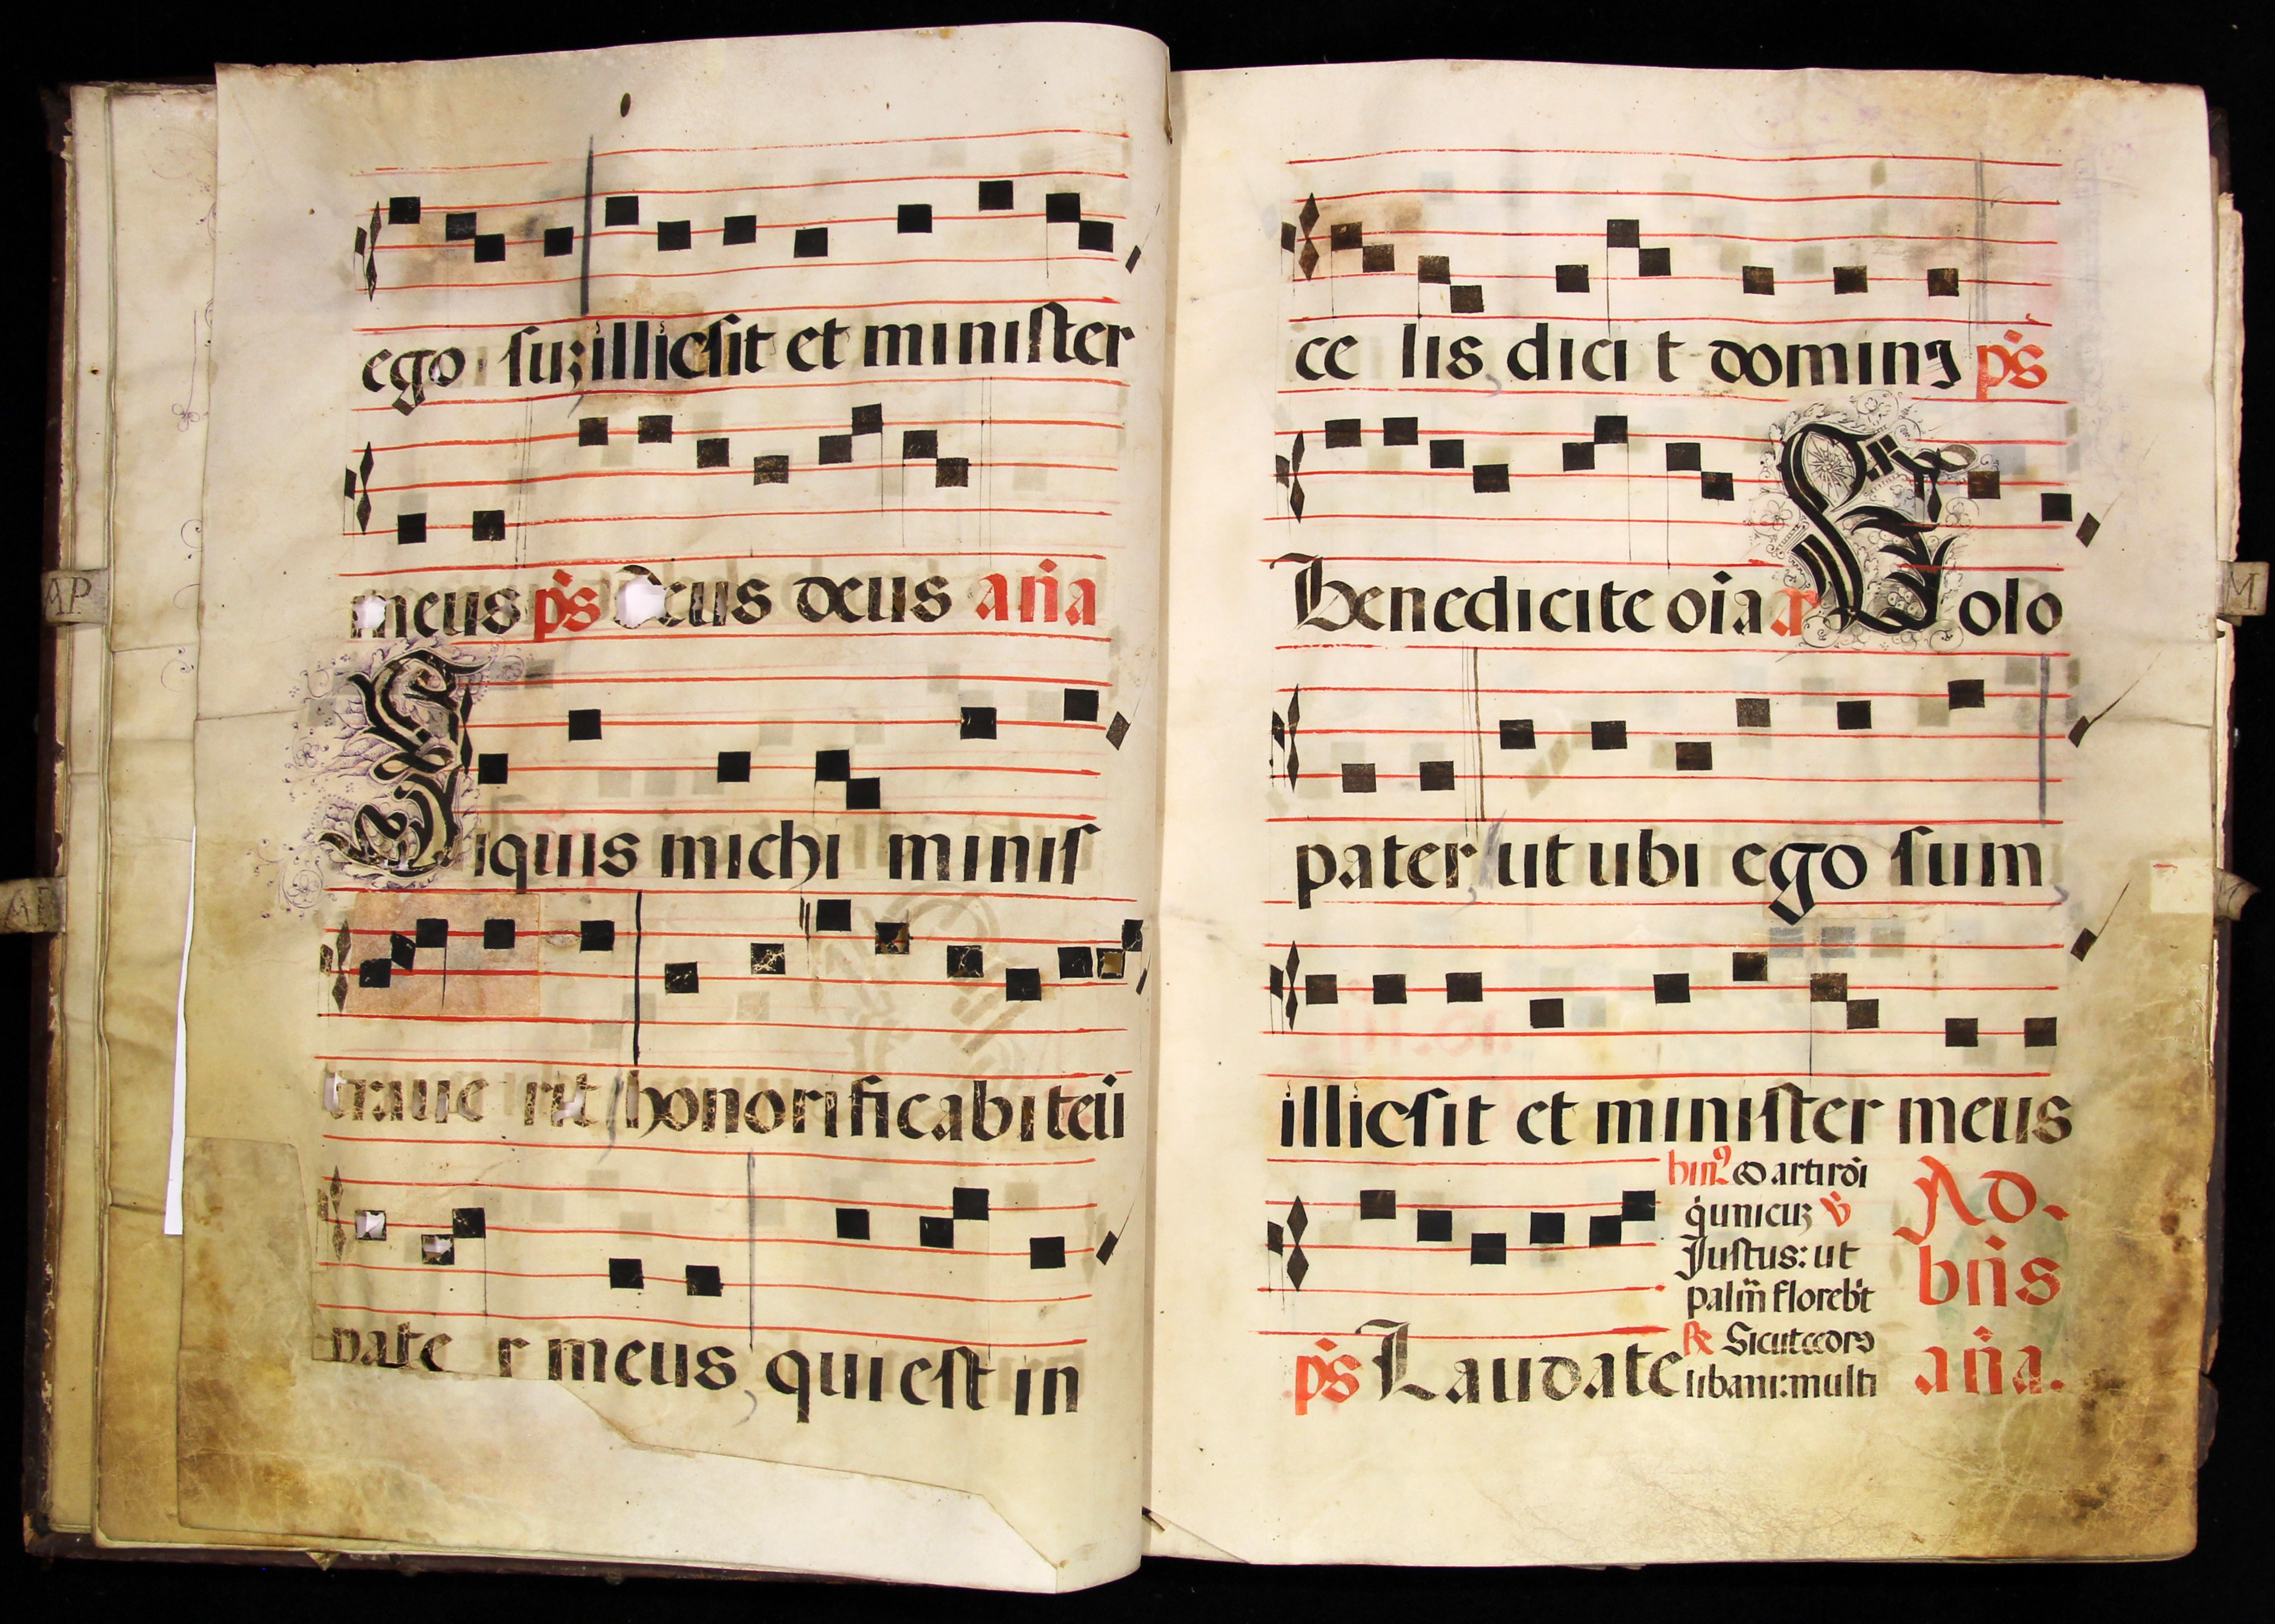 ego suz illic sit et minister
meus ps Deus deus aña
Siquis michi minis
traue rit honorificabit eū
pate r meus qui est in
ce lis dici t dominꝰ ps
Benedicite oīa a Volo
pater ut ubi ego sum
illic sit et minister meus
hin⁹
q̇ unicuz ỽ
Justus: ut
palm̄ floreb't
ps Laudate
℟ Sicut cedrꝰ
libani: multi
Ad.
bn̄s
aña.
AP
M